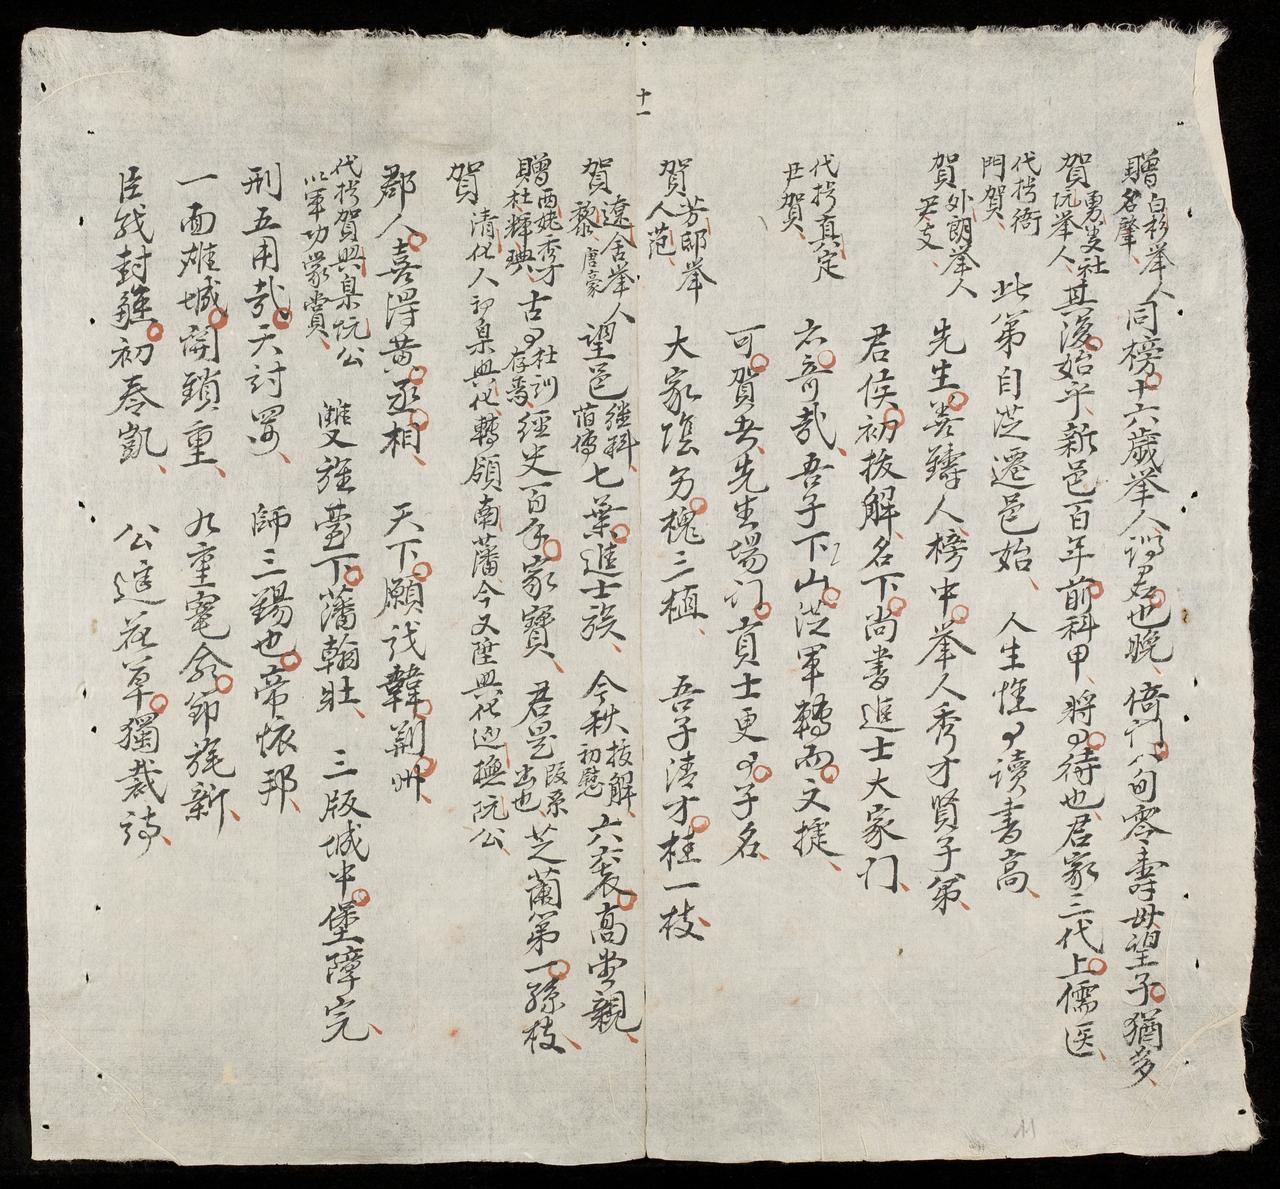 贈白杉举人名肇同榜十六歲举人謂君也晚倚门八旬零壽母望子猶多
賀勇叟社阮举人其後始乎新邑百年前科甲将以待也君家三代上儒医
代挽衛門賀此第自茫遷邑始人生惟以讀書高
賀外朗举人尹支先生善鑄人榜中举人秀才賢子弟
君侯初拔解名下尚書進士大家门
代挽真定卋賀右奇哉吾子下山茫軍轉而文捷
可賀者先生場门貢士更以子名
賀芳邸举人范大家蔭多槐三植吾子清才桂一枝
賀遼舍举人黎唐豪望邑继科苗傳七葉進士族今秋拔解初慰六袠高堂親
贈西姥秀才杜輝璵古以杜訓存焉經史百年家寶君是段系出也芝蘭第一孫枝
賀清化人初臬興化轉領南藩今又陞興化巡撫阮公
郡人喜得黄丞相天下願识韓荆州
代挽賀興臬阮公以軍功蒙賞雙旌臺下藩翰壯三版城中堡障完
刑五用哉天討罪師三錫也帝懷邦
一面雄城開鎖重九重寵命節旄新
臣綫封疆初奏凱公筵花草獨裁诗
十一
11